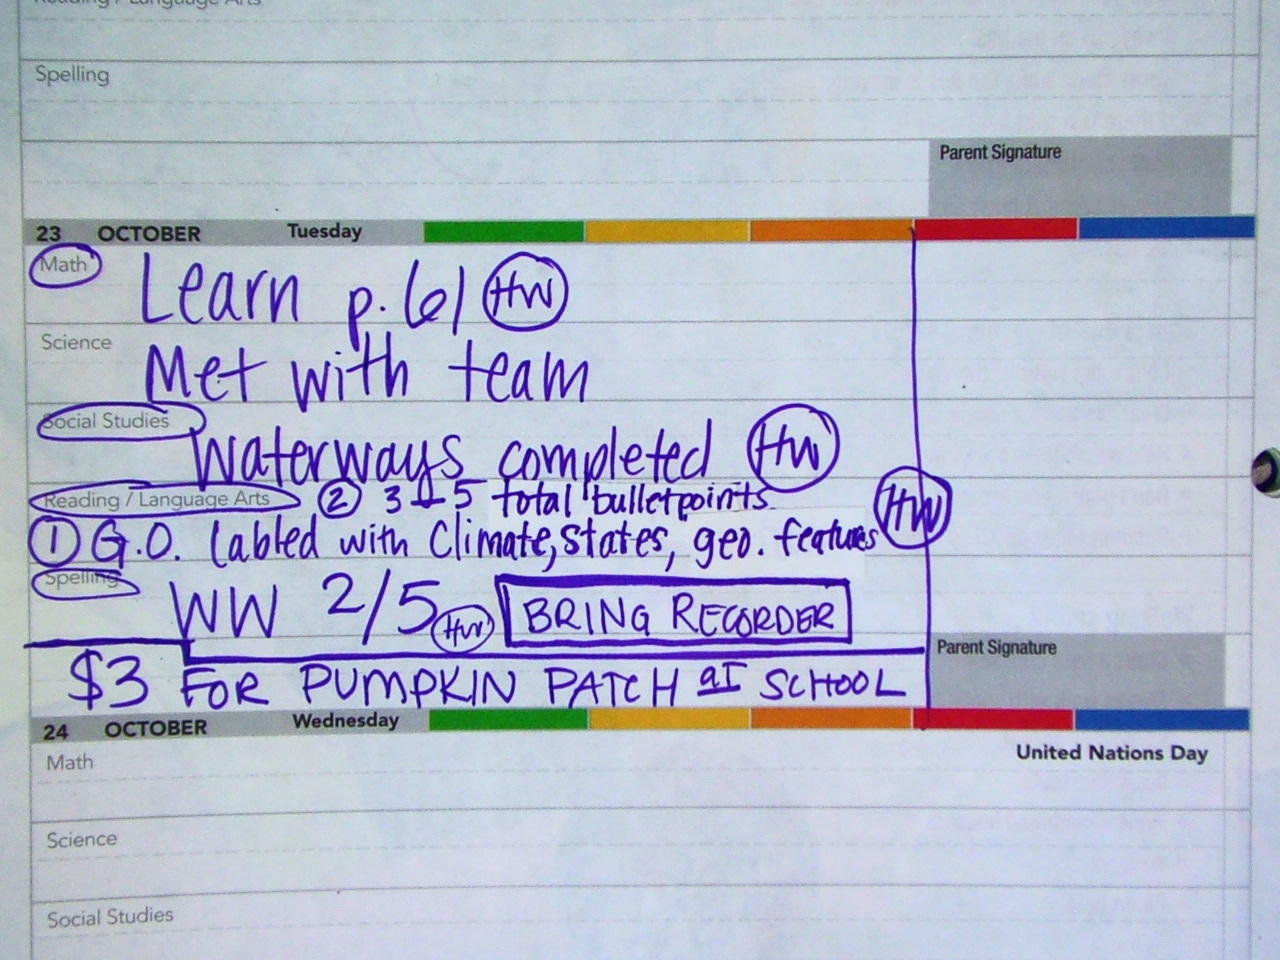 Reading / Language Arts
Spelling
Parent Signature
23 OCTOBER Tuesday
Math Learn p. 61 HW
Science Met with team
Social Studies Waterways completed HW
Reading / Language Arts ② 3 - 5 total bulletpoints
① G.O. labled with Climate, states, geo. features HW
Spelling WW 2/5 HW BRING RECORDER
Parent Signature
$3 FOR PUMPKIN PATCH at SCHOOL
24 OCTOBER Wednesday
Math United Nations Day
Science
Social Studies